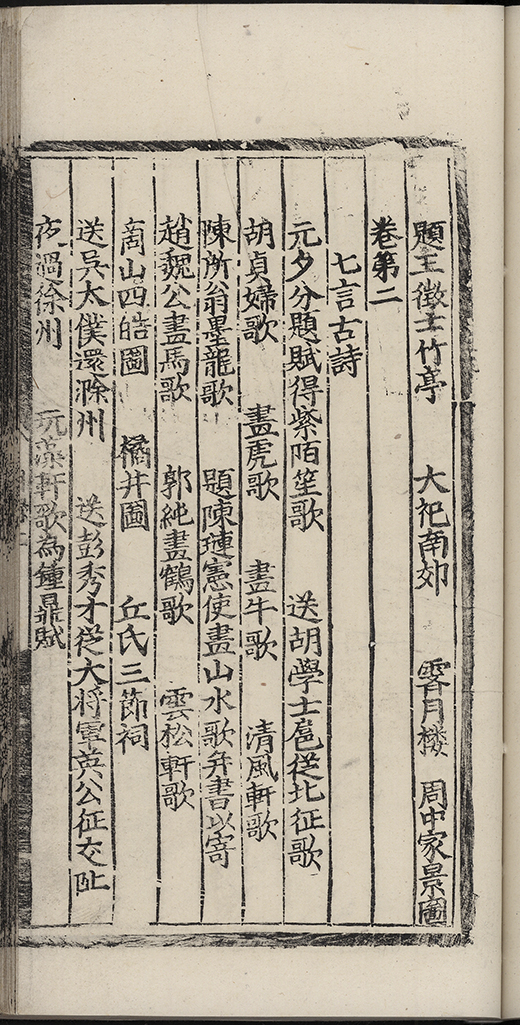 題王徵士竹亭　大祀南郊　霽月樓　周中家景圖
卷第二
七言古詩
元夕分題賦得紫陌笙歌　送胡學士扈從北征歌
胡貞婦歌　畫虎歌　畫牛歌　清風軒歌
陳所翁墨龍歌　題陳璉憲使畫山水歌并書以寄
趙魏公畫馬歌　郭純畫鶴歌　雲松軒歌
商山四皓圖　橘井圖　丘氏三節祠
送吳太僕還滁州　送彭秀才從大將軍英公征交阯
夜過徐州　玩藻軒歌為鍾㫷賦